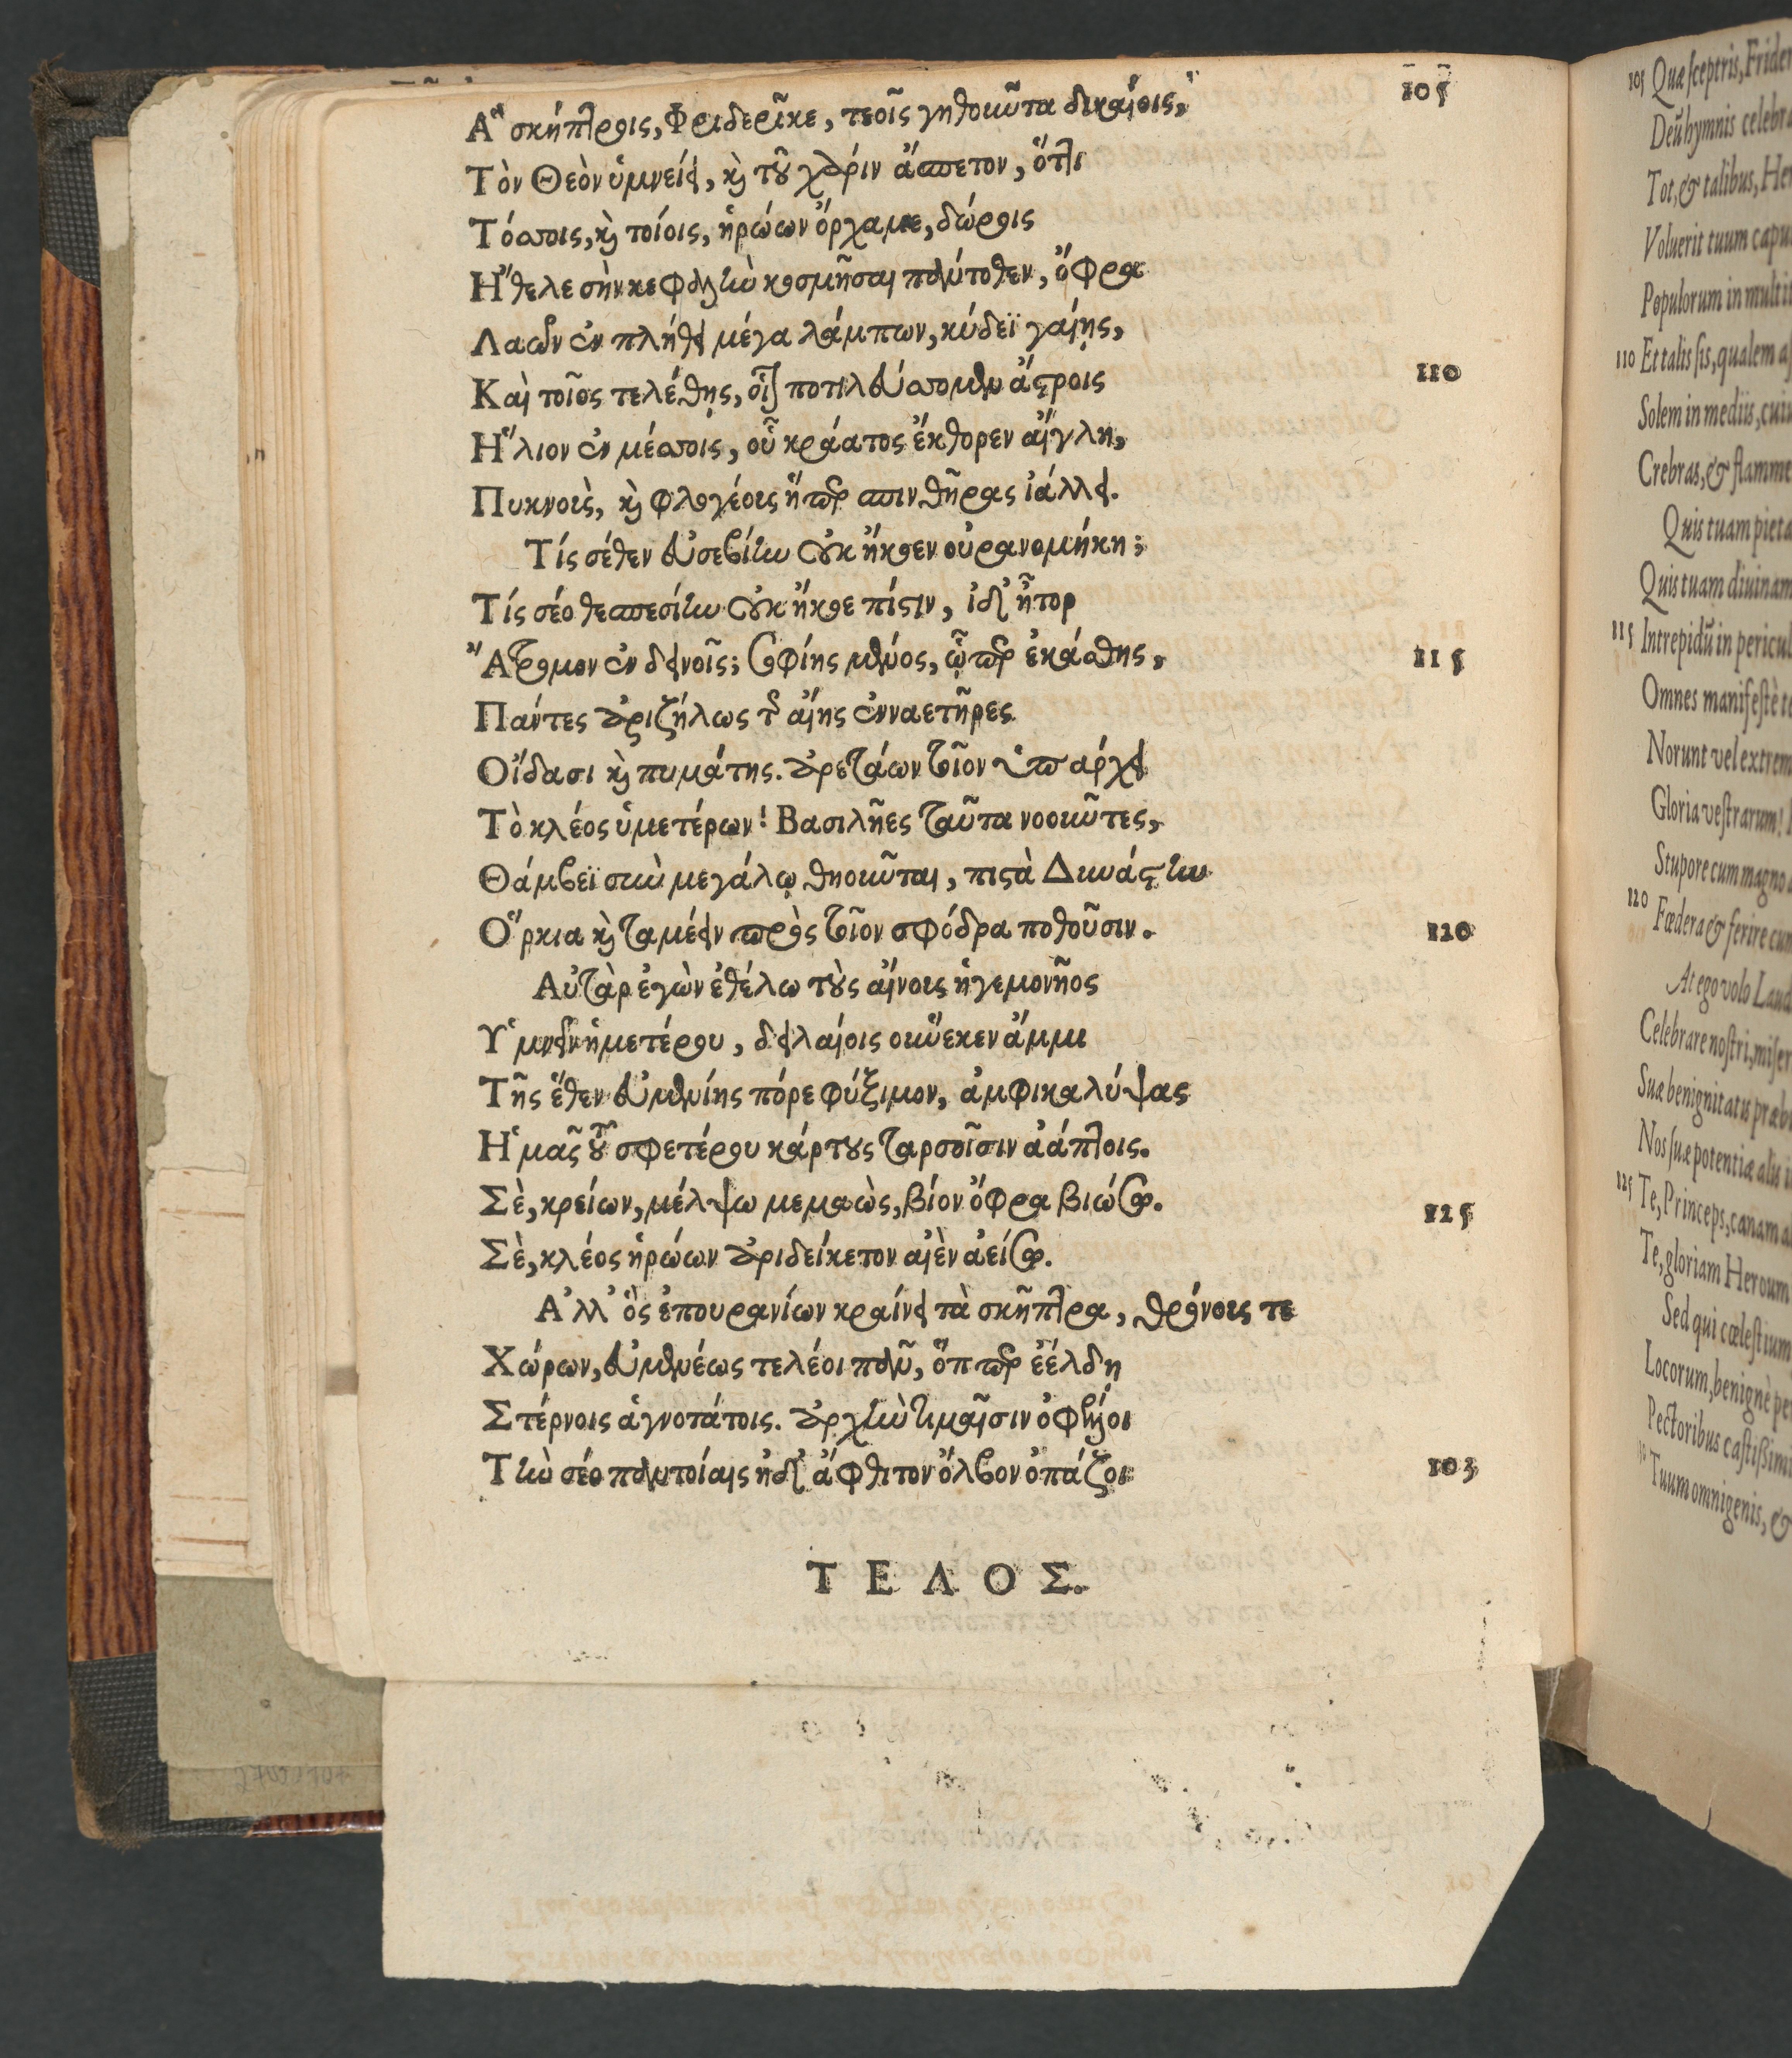 Ἃ σκήπτροις, Φριδερῖκε, τεοῖς γηθοῦντα δικαίοις, 105
Τὸν Θεὸν ὑμνείει, καὶ τοῦ χάριν ἄσπετον, ὅττι
Τόσσοις, καὶ τοίοις, ἡρώων ὄρχαμε, δώροις
Ἤθελε σὴν κεφαλὴν κοσμῆσαι παντόθεν, ὄφρα
Λαῶν ἐν πλήθει μέγα λάμπων, κύδεϊ γαίης,
Καὶ τοῖος τελέθης, οἷόν ποτιλεύσσομεν ἄστροις 110
Ἥλιον ἐν μέσσοις, οὗ κράατος ἔκθορεν αἴγλη,
Πυκνοὺς, καὶ φλογέους ἥπερ σπινθῆρας ἰάλλει.
Τίς σέθεν εὐσεβίην οὐκ ἤκροεν οὐρανομήκη;
Τίς σέο θεσπεσίην οὐκ ἤκροε πίστιν, ἰδ' ἦτορ
Ἄτρομον ἐν δεινοῖς; σοφίης μένος, ᾧπερ ἐκάσθης, 115
Πάντες ἀριζήλως τῆς αἴης ἐνναετῆρες
Οἴδασι καὶ πυμάτης. ἀρετάων τοῖον ὑπάρχει
Τὸ κλέος ὑμετέρων! Βασιλῆες ταῦτα νοοῦντες,
Θάμβεϊ σὺν μεγάλῳ θηοῦνται, πιστὰ Δυνάστην
Ὅρκια καὶ ταμέειν πρὸς τοῖον σφόδρα ποθοῦσιν. 120
Αὐτὰρ ἐγὼν ἐθέλω τοὺς αἴνους ἡγεμονῆος
Ὑμνεῖν ἡμετέρου, δειλαίοις οὕνεκεν ἄμμι
Τῆς ἕθεν εὐμενίης πόρε φύξιμον, ἀμφικαλύψας
Ἡμᾶς τοῦ σφετέρου κάρτους ταρσοῖσιν ἀάπτοις.
Σὲ, κρείων, μέλψω μεμαὼς, βίον ὄφρα βιώσω. 125
Σὲ, κλέος ἡρώων ἀριδείκετον αἰὲν ἀείσω.
Ἀλλ' ὃς ἐπουρανίων κραίνει τὰ σκῆπτρα, θρόνους τε
Χώρων, εὐμενέως τελέοι πᾶν, ὅππερ ἐέλδῃ
Στέρνοις ἁγνοτάτοις. ἀρχὴν τιμαῖσιν ὀφέλλοι
Τὴν σέο παντοίαις ἠδ' ἄφθιτον ὄλβον ὀπάζοι 103
ΤΕΛΟΣ.
105 Quæ sceptris, Frider
Deũ hymnis celebra
Tot, & talibus, He
Voluerit tuum capu
Populorum in multi
110 Et talis sis, qualem a
Solem in mediis, cuiu
Crebras, & flamme
Quis tuam pieta
Quis tuam diuinam
115 Intrepidũ in pericul
Omnes manifestè te
Norunt vel extrem
Gloria vestrarum!
Stupore cum magno
120 Fœdera & ferire cum
At ego volo Laud
Celebrare nostri, miser
Suæ benignitatis præbu
Nos suæ potentiæ alis
125 Te, Princeps, canam a
Te, gloriam Heroum
Sed qui cœlestium
Locorum, benignè per
Pectoribus castissimi
Tuum omnigenis, &